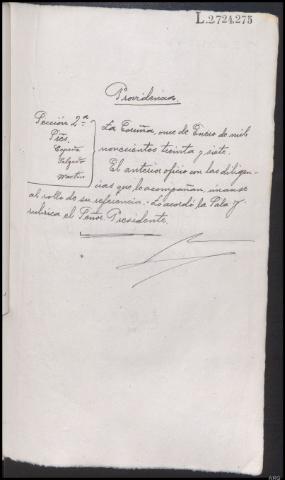 L.2724.275
Providencia
Sección 2ª
Pres.
España
Salgado
Martin
La Coruña, once de Enero de mil
novecientos treinta y siete.
El anterior oficio con las diligen-
cias que lo acompañan, únanse
al rollo de su referencia.- Lo acordó la Sala y
rubrica el Señor Presidente.